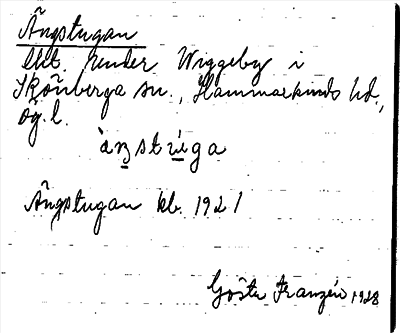 Ängstugan
lht. under Wiggeby i
Skönberga sn., Hammarkinds hd.,
Ög. l.
àŋstúga
Ängstugan kb. 1921
Gösta Franzén 1928